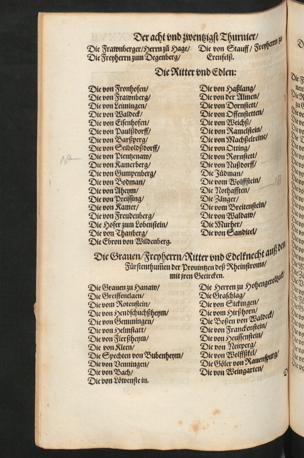 Der acht vnd zwentzigst Thurnier/
Die Frawnberger/Herrn zů Hage/
Die Freyherrn zum Degenberg/
Die von Stauff/ Freyherrn zu
Erenfelß.
Die Ritter vnd Edlen:
Die von Fronhofen/
Die von Frawnberg/
Die von Leiningen/
Die von Waldeck/
Die von Eisenhofen/
Die von Parßperg/
Die von Seiboldßdorff/
Die von Pientzenaw/
Die von Ramerberg/
Die von Gumpenberg/
Die von Bodman/
Die von Aheym/
Die von Preissing/
Die von Ramer/
Die von Freudenberg/
Die Hofer zum Lobenstein/
Die von Thanberg/
Die Ebron von Wildenberg.
Die von Haßlang/
Die von der Almen/
Die von Dornstett/
Die von Offenstetten/
Die von Weichß/
Die von Ramelstein/
Die von Machßelreine/
Die von Nußdorff/
Die Züdman/
Die von Wolffstein/
Die Nothafften/
Die Zänger/
Die von Breitenstein/
Die von Waldaw/
Die Murher/
Die von Sandicel/
Die Grauen/Freyherrn/Ritter vnd Edelknecht auß den
Fürstenthumen der Prouintzen deß Rheinstroms/
mit jren Gezircken.
Die Grauen zu Hanaw/
Die Greiffenclaen/
Die von Rotenstein/
Die von Hendschuchßheym/
Die von Gemmingen/
Die von Helmstatt/
Die von Flersheym/
Die von Kleen/
Die Spechten von Bubenheym/
Die von Venningen/
Die von Bach/
Die von Löwenstein.
Die Herren zu Hohengeroltzeck/
Die Graschlag/
Die von Sickingen/
Die von Hirßhorn/
Die Bossen von Waldeck/
Die von Franckenstein/
Die von Heussenstein/
Die von Neiperg/
Die von Wolffßkel/
Die Göler von Rauenspurg/
Die von Weingarten/